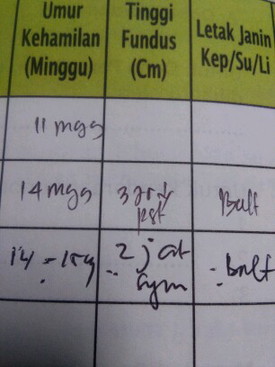 Umur Kehamilan (Minggu)
Tinggi Fundus (Cm)
Letak Janin Kep/Su/Li
11 mgg
14 mgg
3 jr ↓ pst
Ball
14 - 15
2 j at sym
Ball